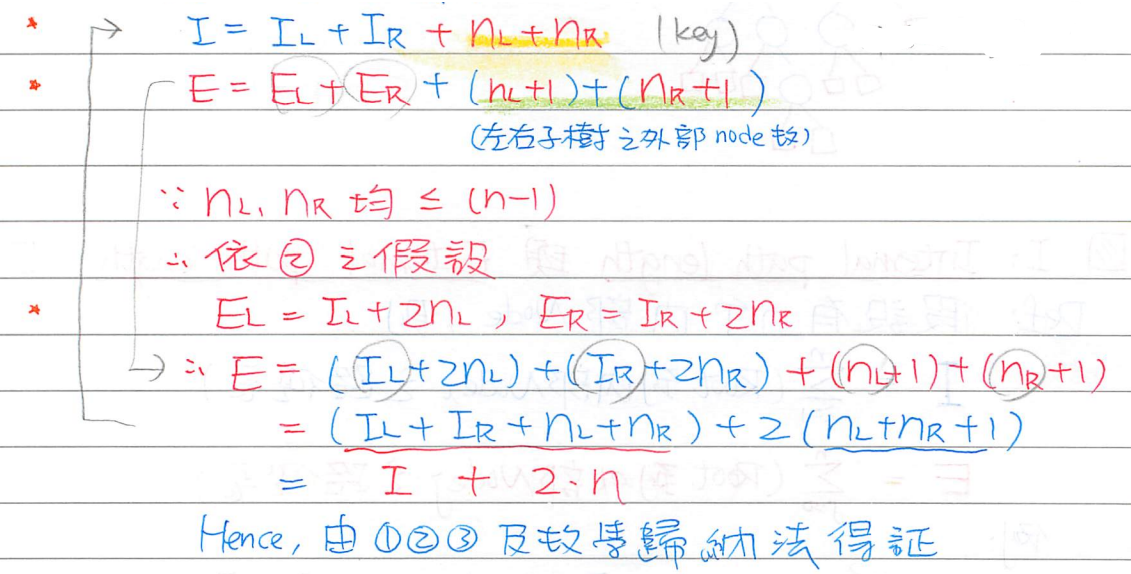 * I = IL + IR + nL + nR (key)
* E = EL + ER + (nL+1) + (nR+1)
(左右子樹之外部 node 數)
∵ nL, nR 均 ≤ (n-1)
∴ 依②之假設
* EL = IL + 2nL , ER = IR + 2nR
∴ E = (IL+2nL) + (IR+2nR) + (nL+1) + (nR+1)
= (IL + IR + nL + nR) + 2(nL+nR+1)
= I + 2·n
Hence, 由①②③及數學歸納法得証